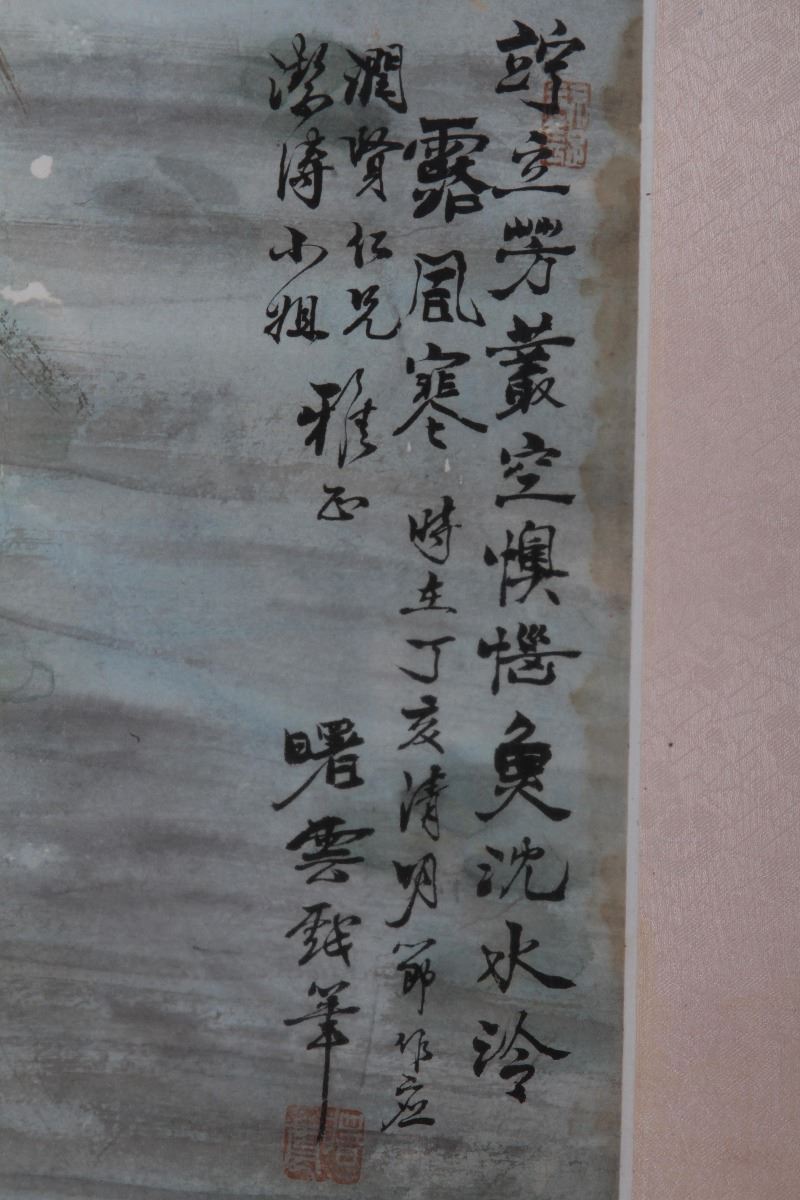 竚立芳叢空懊惱魚沈水冷
露風寒時在丁亥清明節作應
潤賢仁兄
潔濤小姐
雅正
曙雲戲筆